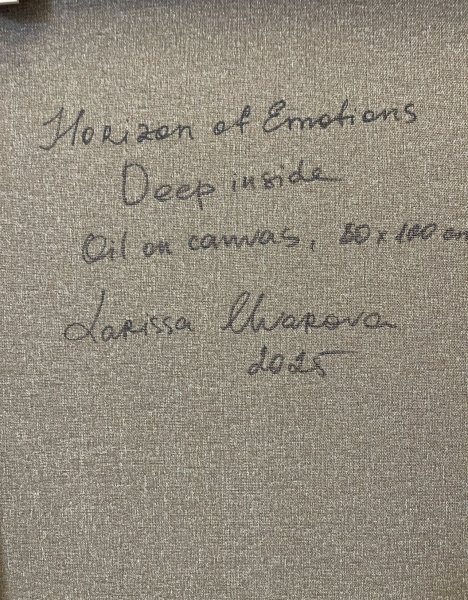 Horizon of Emotions
Deep inside
Oil on canvas, 80 x 100 cm
Larissa Uvarova
2025